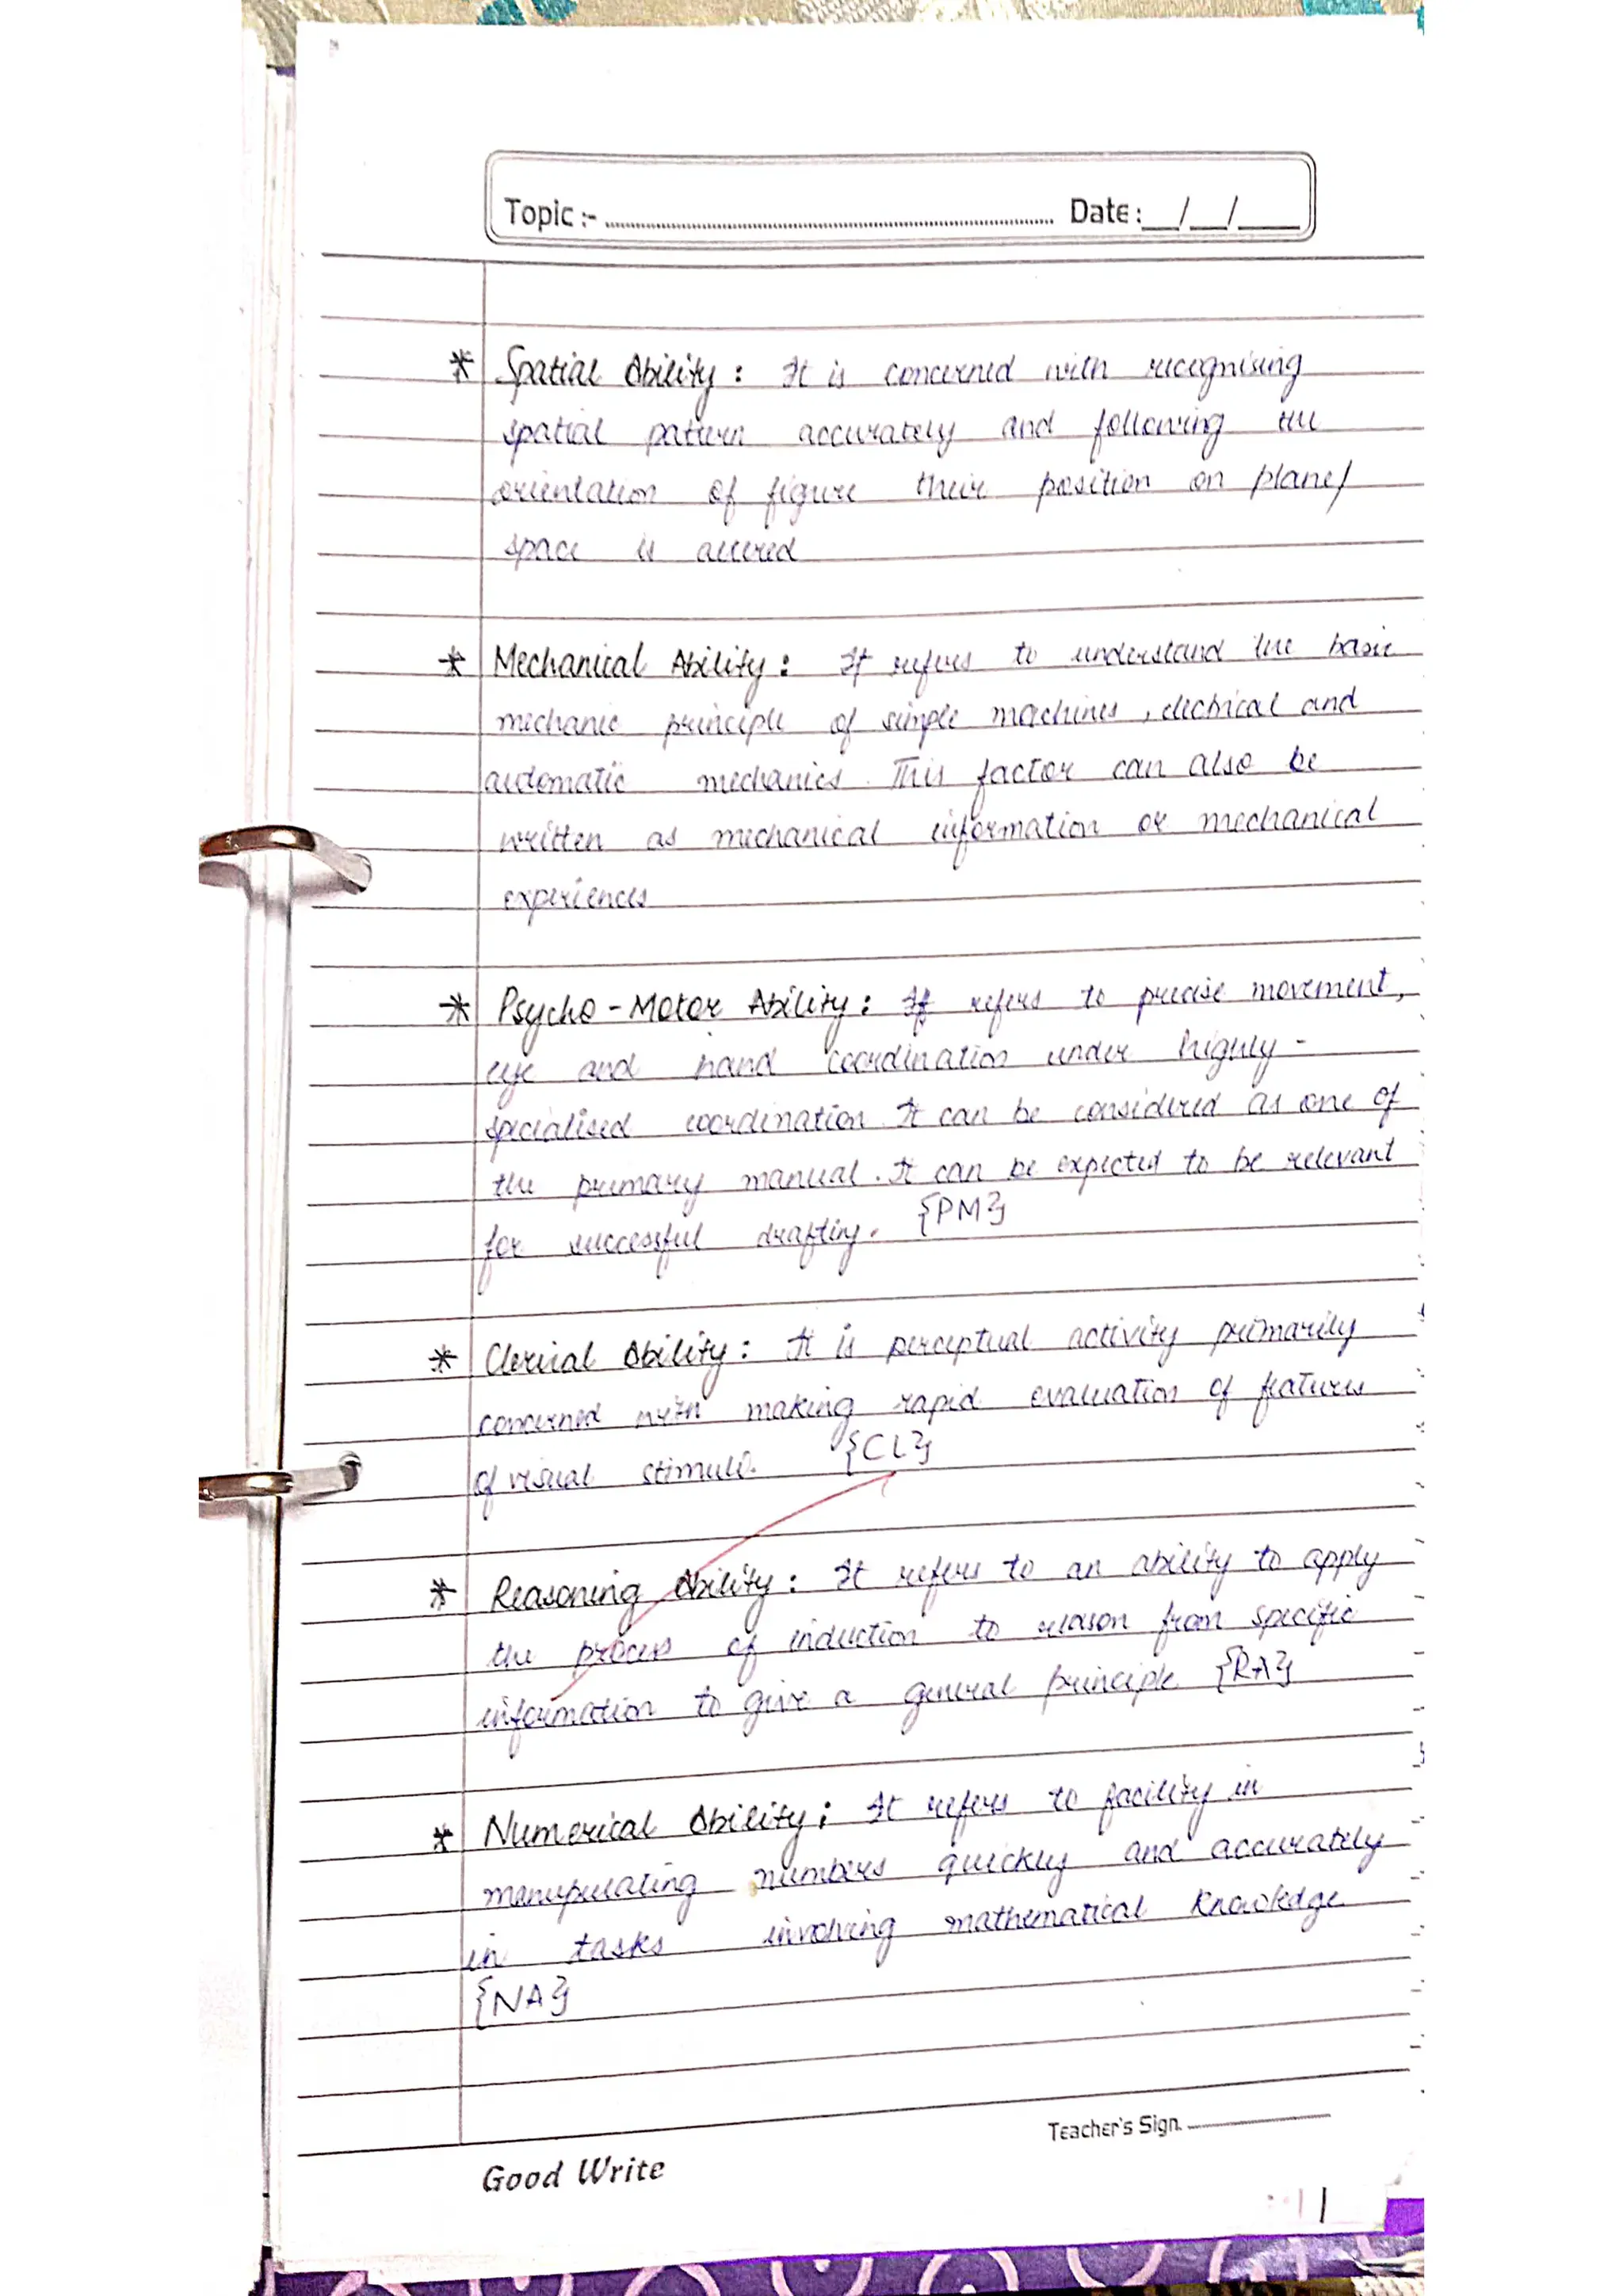 Topic :- ........................ Date : __/__/____
* Spatial Ability : It is concerned with recognising
spatial pattern accurately and following the
orientation of figure their position on plane/
space is altered
* Mechanical Ability : It refers to understand the basic
mechanic principle of simple machines, electrical and
automatic mechanics. This factor can also be
written as mechanical information or mechanical
experiences
* Psycho-Motor Ability : It refers to precise movement,
eye and hand coordination under highly-
specialised coordination. It can be considered as one of
the primary manual. It can be expected to be relevant
for successful drafting. {PM}
* Clerical Ability : It is perceptual activity primarily
concerned with making rapid evaluation of features
of visual stimuli. {CL}
* Reasoning Ability : It refers to an ability to apply
the process of induction to reason from specific
information to give a general principle {RA}
* Numerical Ability : It refers to facility in
manupulating numbers quickly and accurately
in tasks involving mathematical knowledge
{NA}
Teacher's Sign. ________
Good Write
11